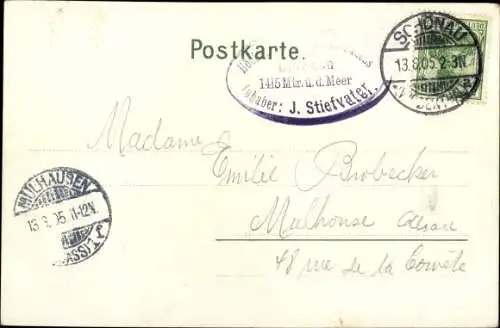 Postkarte.
SCHÖNAU
13.8.05.2-3N.
1415 Mtr. ü. d. Meer
Inhaber: J. Stiefvater.
Madame
Emilie Brobecker
Mulhouse Alsace
48 rue de la
MÜLHAUSEN
13.8.05.11-12N.